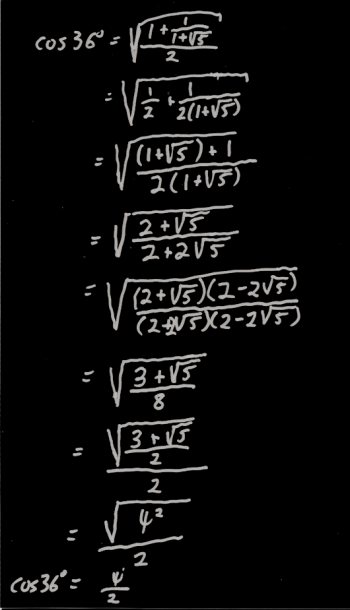 cos36° = √((1 + 1/(1+√5))/2)
= √(1/2 + 1/(2(1+√5)))
= √(((1+√5)+1)/(2(1+√5)))
= √((2+√5)/(2+2√5))
= √(((2+√5)(2-2√5))/((2+2√5)(2-2√5)))
= √((3+√5)/8)
= √((3+√5)/2)/2
= √(φ²)/2
cos36° = φ/2